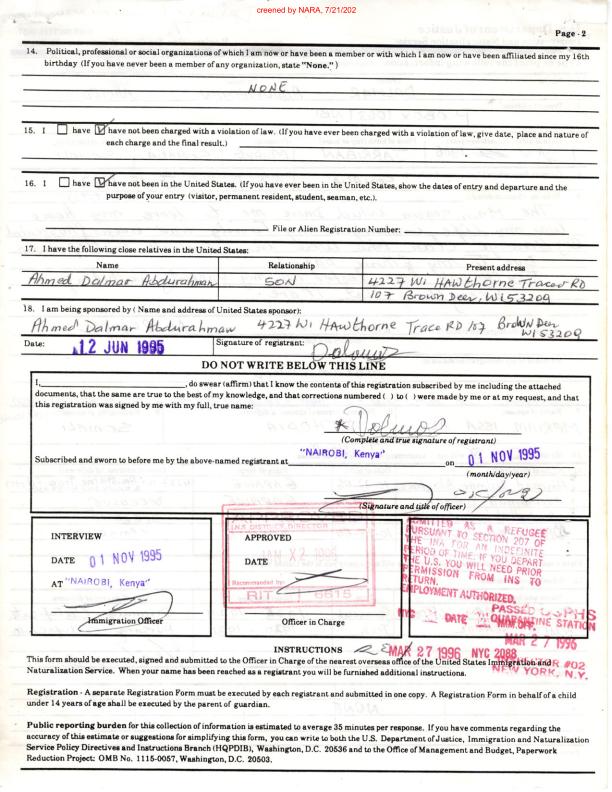 creened by NARA, 7/21/202
Page - 2
14. Political, professional or social organizations of which I am now or have been a member or with which I am now or have been affiliated since my 16th
birthday (If you have never been a member of any organization, state "None.")
NONE
15. I have have not been charged with a violation of law. (If you have ever been charged with a violation of law, give date, place and nature of
each charge and the final result.)
16. I have have not been in the United States. (If you have ever been in the United States, show the dates of entry and departure and the
purpose of your entry (visitor, permanent resident, student, seaman, etc.).
File or Alien Registration Number:
17. I have the following close relatives in the United States:
Name Relationship Present address
Ahmed Dalmar Abdurahman SON 4227 Wi HAWthorne Trace RD
107 Brown Deer, Wi 53209
18. I am being sponsored by ( Name and address of United States sponsor):
Ahmed Dalmar Abdurahmaw 4227 Wi HAWthorne Trace RD 107 BroWN Deer
Wi 53209
Date: 12 JUN 1995 Signature of registrant:
DO NOT WRITE BELOW THIS LINE
I, , do swear (affirm) that I know the contents of this registration subscribed by me including the attached
documents, that the same are true to the best of my knowledge, and that corrections numbered ( ) to ( ) were made by me or at my request, and that
this registration was signed by me with my full, true name:
(Complete and true signature of registrant)
Subscribed and sworn to before me by the above-named registrant at "NAIROBI, Kenya" on 01 NOV 1995
(month/day/year)
(Signature and title of officer)
INTERVIEW
DATE 01 NOV 1995
AT "NAIROBI, Kenya"
Immigration Officer
INS DISTRICT DIRECTOR
APPROVED
DATE JAN 1996
Recommended by:
RIT 6815
Officer in Charge
ADMITTED AS A REFUGEE
PURSUANT TO SECTION 207 OF
THE INA FOR AN INDEFINITE
PERIOD OF TIME. IF YOU DEPART
THE U.S. YOU WILL NEED PRIOR
PERMISSION FROM INS TO
RETURN.
EMPLOYMENT AUTHORIZED.
NYC DATE IMM.OFF.
PASSED USPHS
QUARANTINE STATION
MAR 27 1996
NEW YORK, N.Y.
INSTRUCTIONS
RE MAR 27 1996 NYC 2088
#02
This form should be executed, signed and submitted to the Officer in Charge of the nearest overseas office of the United States Immigration and
Naturalization Service. When your name has been reached as a registrant you will be furnished additional instructions.
Registration - A separate Registration Form must be executed by each registrant and submitted in one copy. A Registration Form in behalf of a child
under 14 years of age shall be executed by the parent of guardian.
Public reporting burden for this collection of information is estimated to average 35 minutes per response. If you have comments regarding the
accuracy of this estimate or suggestions for simplifying this form, you can write to both the U.S. Department of Justice, Immigration and Naturalization
Service Policy Directives and Instructions Branch (HQPDIB), Washington, D.C. 20536 and to the Office of Management and Budget, Paperwork
Reduction Project: OMB No. 1115-0057, Washington, D.C. 20503.